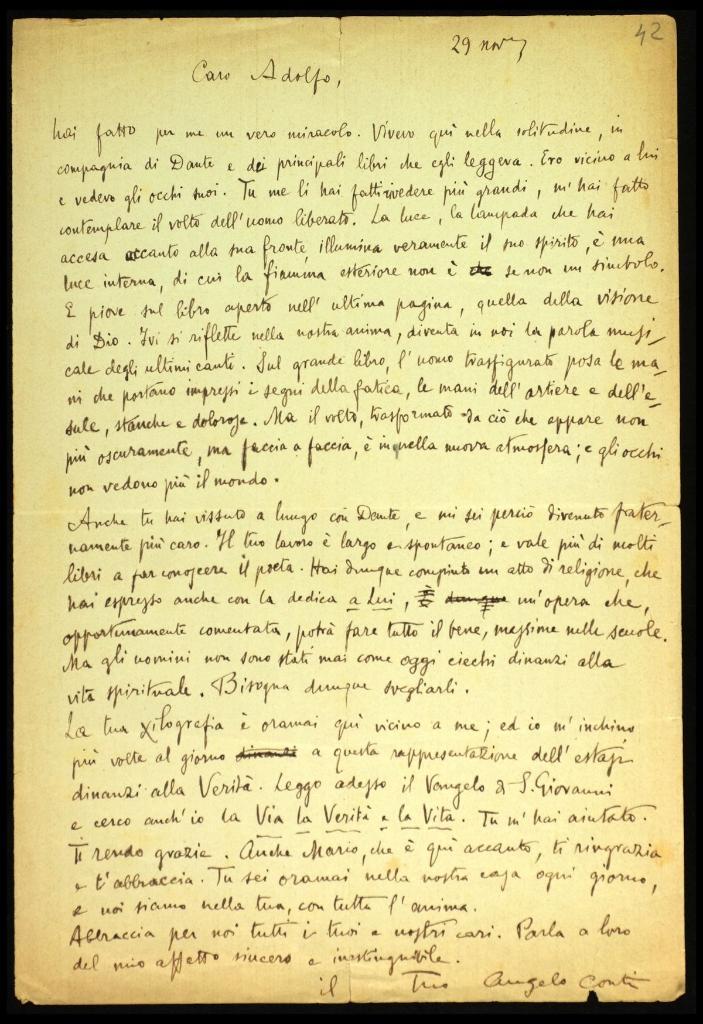 42
29 nov
Caro Adolfo,
hai fatto per me un vero miracolo. Vivevo quì nella solitudine, in
compagnia di Dante e dei principali libri che egli leggeva. Ero vicino a lui
e vedevo gli occhi suoi. Tu me li hai fatti vedere più grandi, m'hai fatto
contemplare il volto dell'uomo liberato. La luce, la lampada che hai
accesa accanto alla sua fronte illumina veramente il suo spirito, è una
luce interna, di cui la fiamma esteriore non è che se non un simbolo.
E piove sul libro aperto nell'ultima pagina, quella della visione
di Dio. Ivi si riflette nella nostra anima, diventa in noi la parola musi-
cale degli ultimi canti. Sul grande libro, l'uomo trasfigurato posa le ma-
ni che portano impressi i segni della fatica, le mani dell'artiere e dell'e-
sule, stanche e dolorose. Ma il volto, trasformato da ciò che appare non
più oscuramente, ma faccia a faccia, è in quella nuova atmosfera; e gli occhi
non vedono più il mondo.
Anche tu hai vissuto a lungo con Dante, e mi sei perciò divenuto frater-
namente più caro. Il tuo lavoro è largo e spontaneo; e vale più di molti
libri a far conoscere il poeta. Hai dunque compiuto un atto di religione, che
hai espresso anche con la dedica a Lui, È dunque un'opera che,
opportunamente comentata, potrà fare tutto il bene, massime nelle scuole.
Ma gli uomini non sono stati mai come oggi ciechi dinanzi alla
vita spirituale. Bisogna dunque svegliarli.
La tua xilografia è oramai quì vicino a me; ed io m'inchino
più volte al giorno dinanzi a questa rappresentazione dell'estasi
dinanzi alla Verità. Leggo adesso il Vangelo di S. Giovanni
e cerco anch'io la Via la Verità e la Vita. Tu m'hai aiutato.
Ti rendo grazie. Anche Mario, che è quì accanto, ti ringrazia
e t'abbraccia. Tu sei oramai nella nostra casa ogni giorno,
e noi siamo nella tua, con tutta l'anima.
Abbraccia per noi tutti i tuoi e nostri cari. Parla a loro
del mio affetto sincero e inestinguibile.
il Tuo Angelo Conti